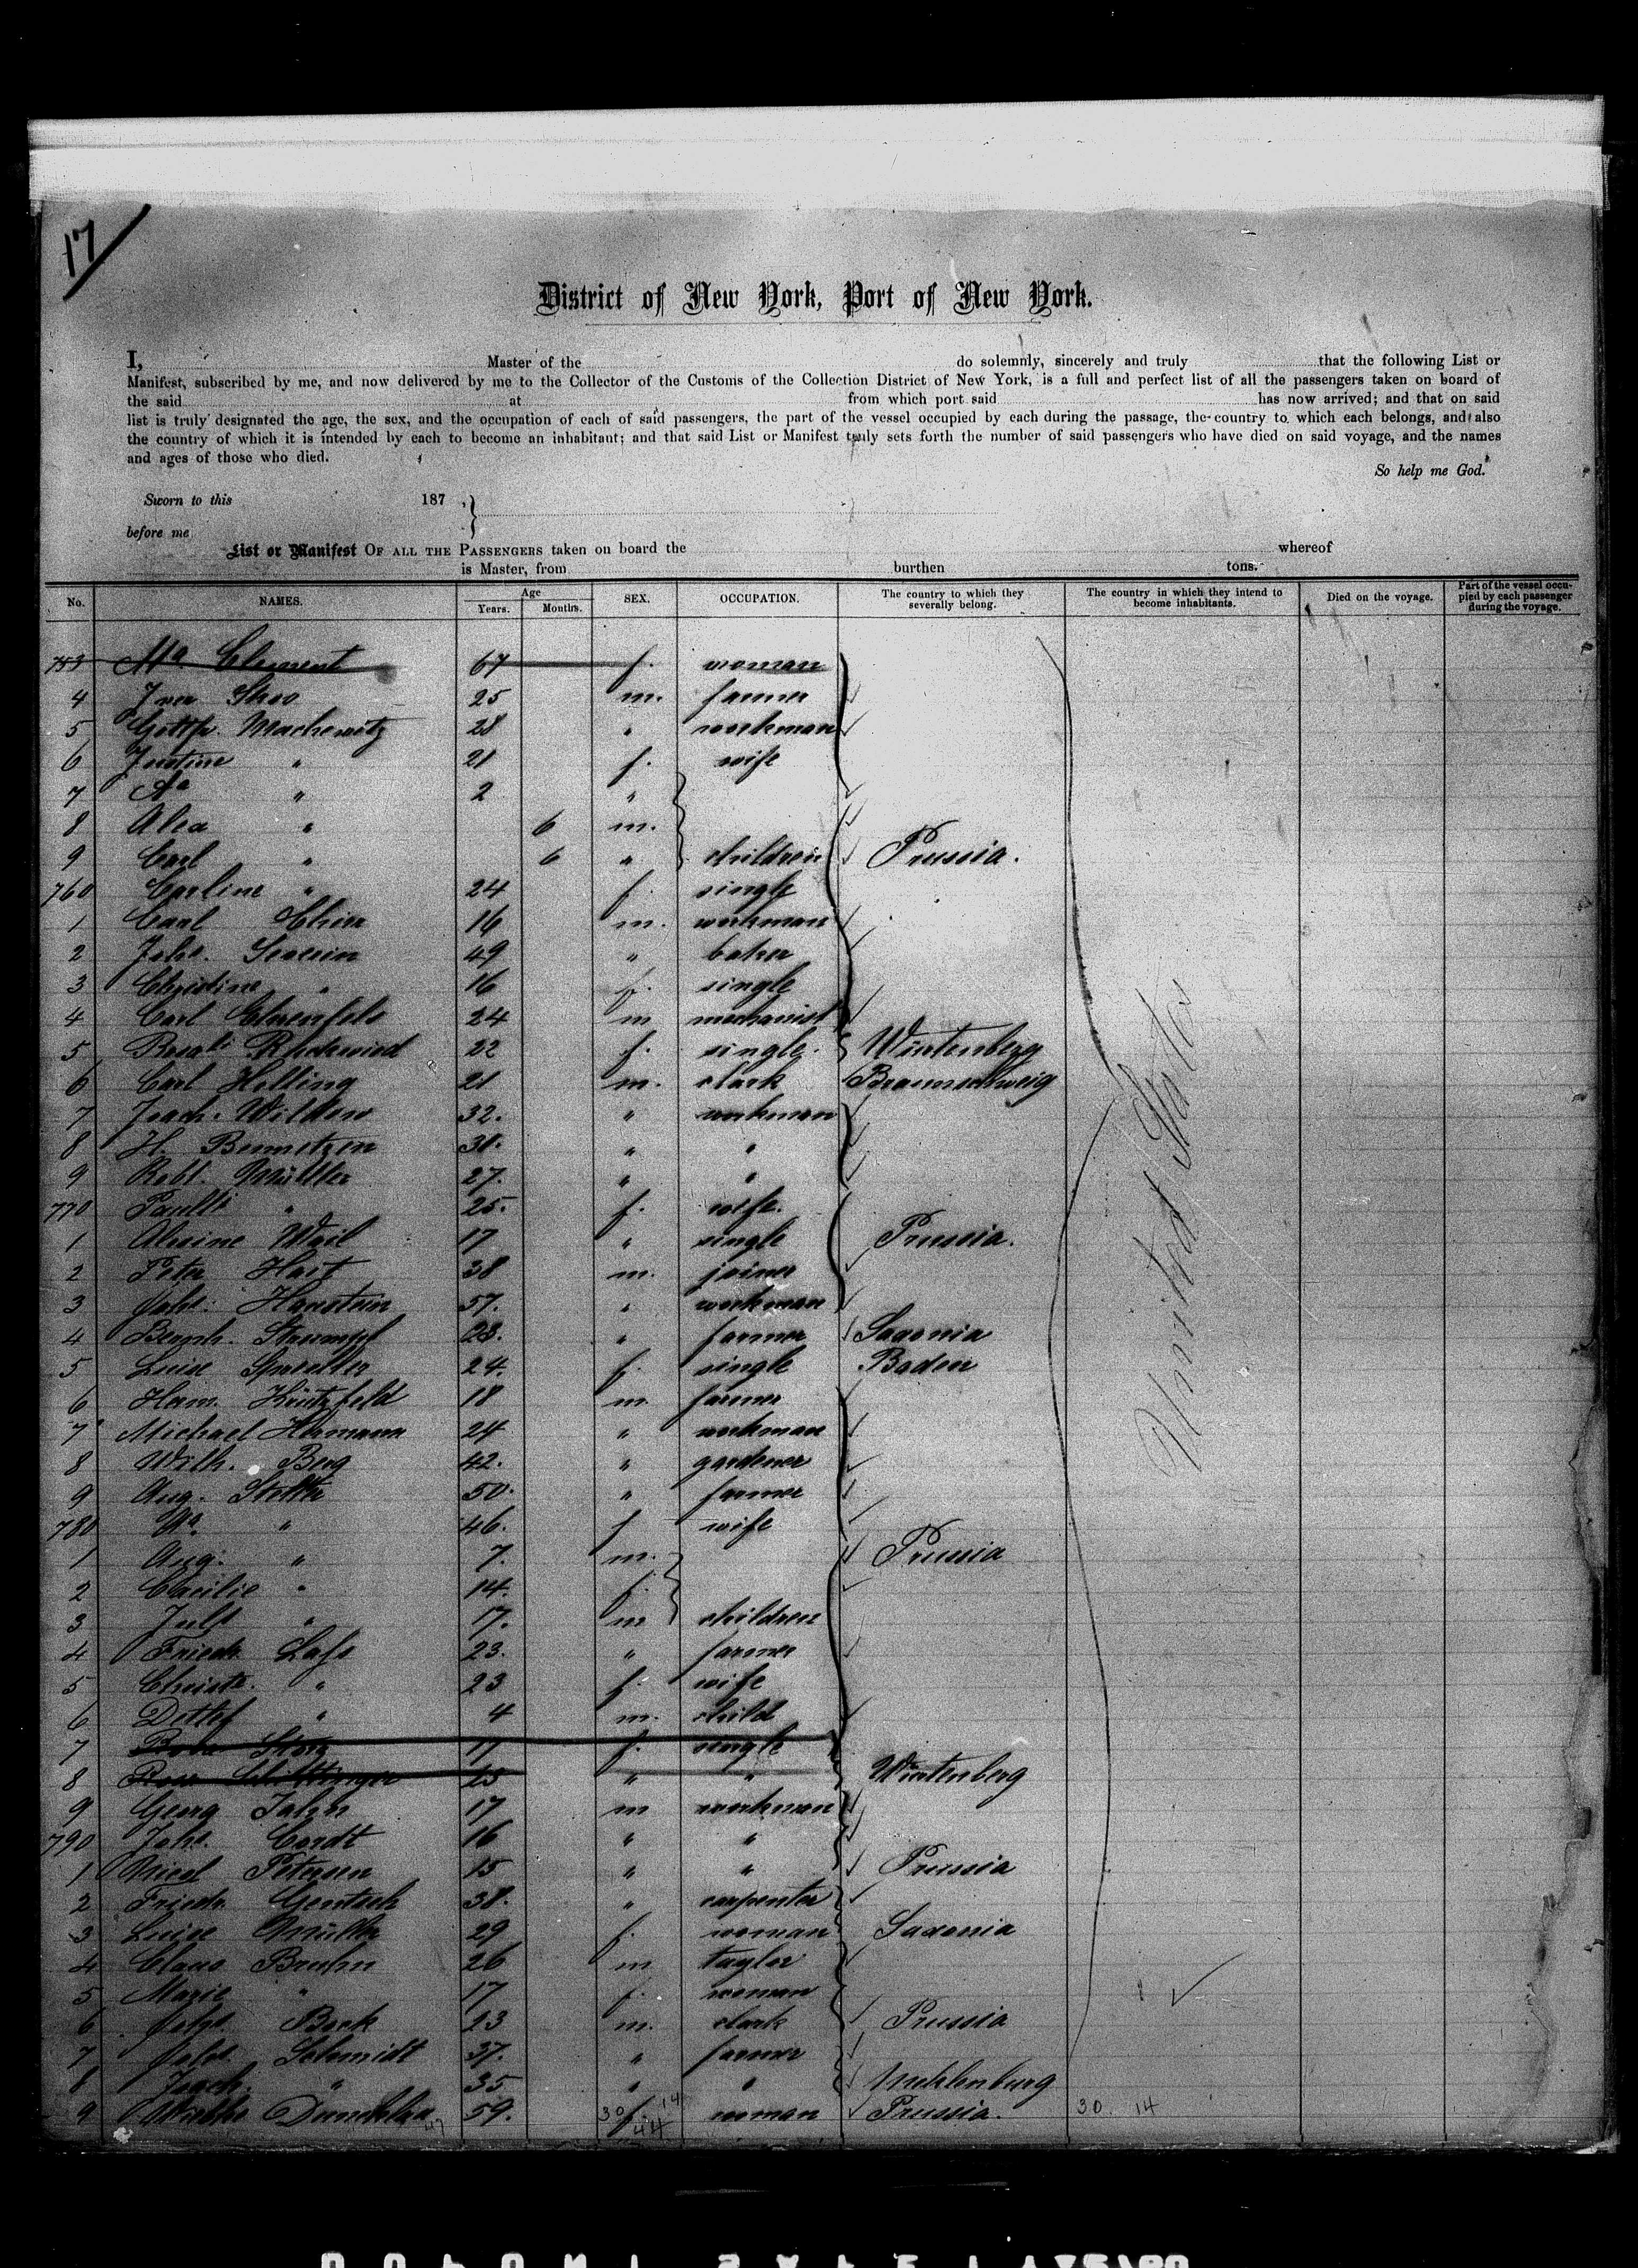 17
District of New York, Port of New York.
I, Master of the do solemnly, sincerely and truly that the following List or
Manifest, subscribed by me, and now delivered by me to the Collector of the Customs of the Collection District of New York, is a full and perfect list of all the passengers taken on board of
the said at from which port said has now arrived; and that on said
list is truly designated the age, the sex, and the occupation of each of said passengers, the part of the vessel occupied by each during the passage, the country to which each belongs, and also
the country of which it is intended by each to become an inhabitant; and that said List or Manifest truly sets forth the number of said passengers who have died on said voyage, and the names
and ages of those who died.
So help me God.
Sworn to this 187 ,
before me
List or Manifest OF ALL THE PASSENGERS taken on board the whereof
is Master, from burthen tons.
No. NAMES. Age Years. Months. SEX. OCCUPATION. The country to which they severally belong. The country in which they intend to become inhabitants. Died on the voyage. Part of the vessel occupied by each passenger during the voyage.
753 Ma Clement 67 f. woman
4 25 m. farmer
5 Gottfr. Machewitz 28 " workman
6 Justine " 21 f. wife
7 Aa " 2 "
8 Alex " 6 m.
9 Carl " 6 " children Prussia.
760 Carline " 24 f. single
1 Carl 16 m. workman
2 Johs. Severin 49 " baker
3 Christine " 16 f. single
4 Carl Ehrenfels 24 m mechanist
5 22 f. single. Würtenberg
6 Carl Helling 21 m. clark Braunschweig
7 Joach. Wilden 32. " workman
8 H. Bennetzen 31. " "
9 Robt. Müller 27. " "
770 " 25. f. wife.
1 Alwine Weil 17 " single Prussia.
2 Peter 38 m. joiner
3 Johs. Hanstein 57. " workman
4 Bernh. Strumpf 23. " farmer Saxonia
5 Luise 24. f. single Baden
6 Herm. Krützfeld 18 m farmer
7 Michael Hermann 24 " workman
8 Wilh. Berg 42. " gardener
9 Aug. 50. " farmer
780 " 46. f wife
1 Aug. " 7. m. Prussia
2 Caecilie " 14. f.
3 Juls " 17. m children
4 Friedr. Lass 23. " farmer
5 Christe. " 23 f. wife
6 Detlef " 4 m. child
7 17 f. single
8 25 " " Würtenberg
9 Georg 17 m workman
790 Johs. Cordt 16 " "
1 Petersen 15 " " Prussia
2 Friedr. Gentsch 38. " carpenter
3 Luise Müller 29 f. woman Saxonia
4 Claus Bruhn 26 m taylor
5 Marie " 17 f. woman
6 Johs. 23 m. clark Prussia
7 Johs. Schmidt 37. " farmer
8 Joach. " 35 " " Mecklenburg
9 59. f. woman Prussia.
United States
47 30 14 44 30. 14